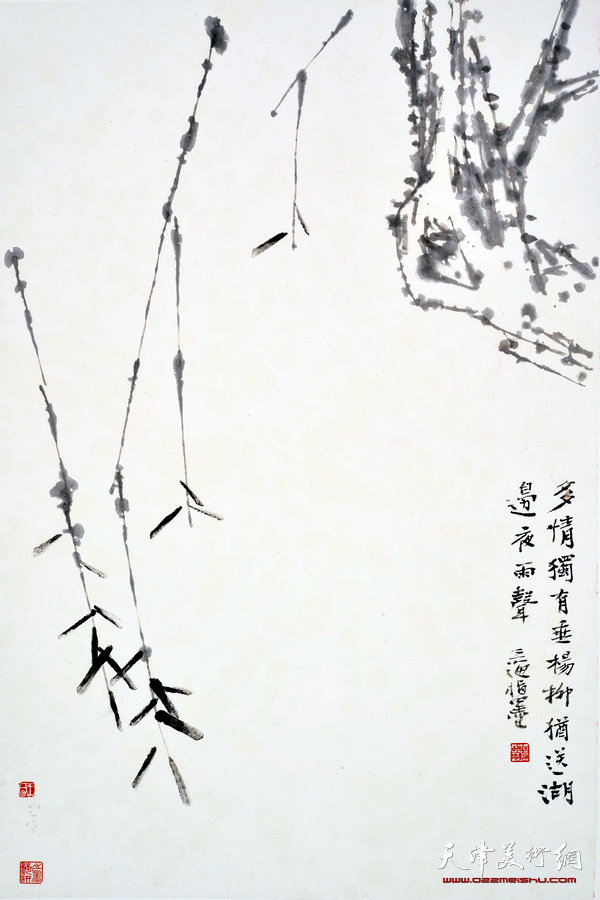 多情獨有垂楊柳猶送湖
邊夜雨聲
三迤指墨
天津美術網
www.022meishu.com